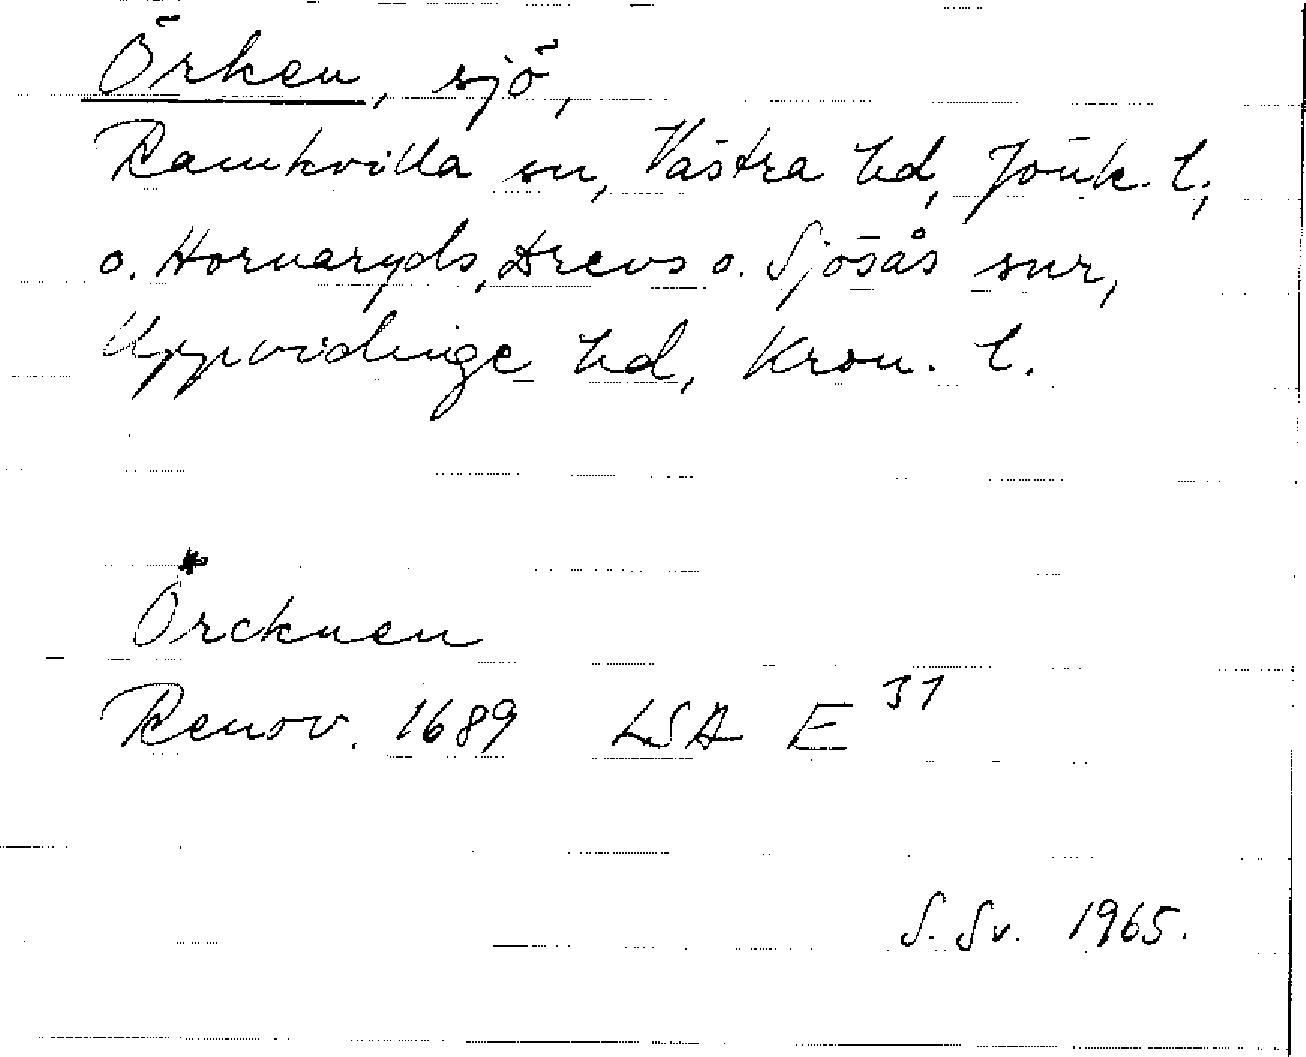 Örken, sjö,
Ramkvilla sn, Västra hd, Jönk. l;
o. Hornaryds, Drevs o. Sjösås snr,
Uppvidinge hd, Kron. l.
Örcknen
Renov. 1689 LSA E 31
S. Sv. 1965.